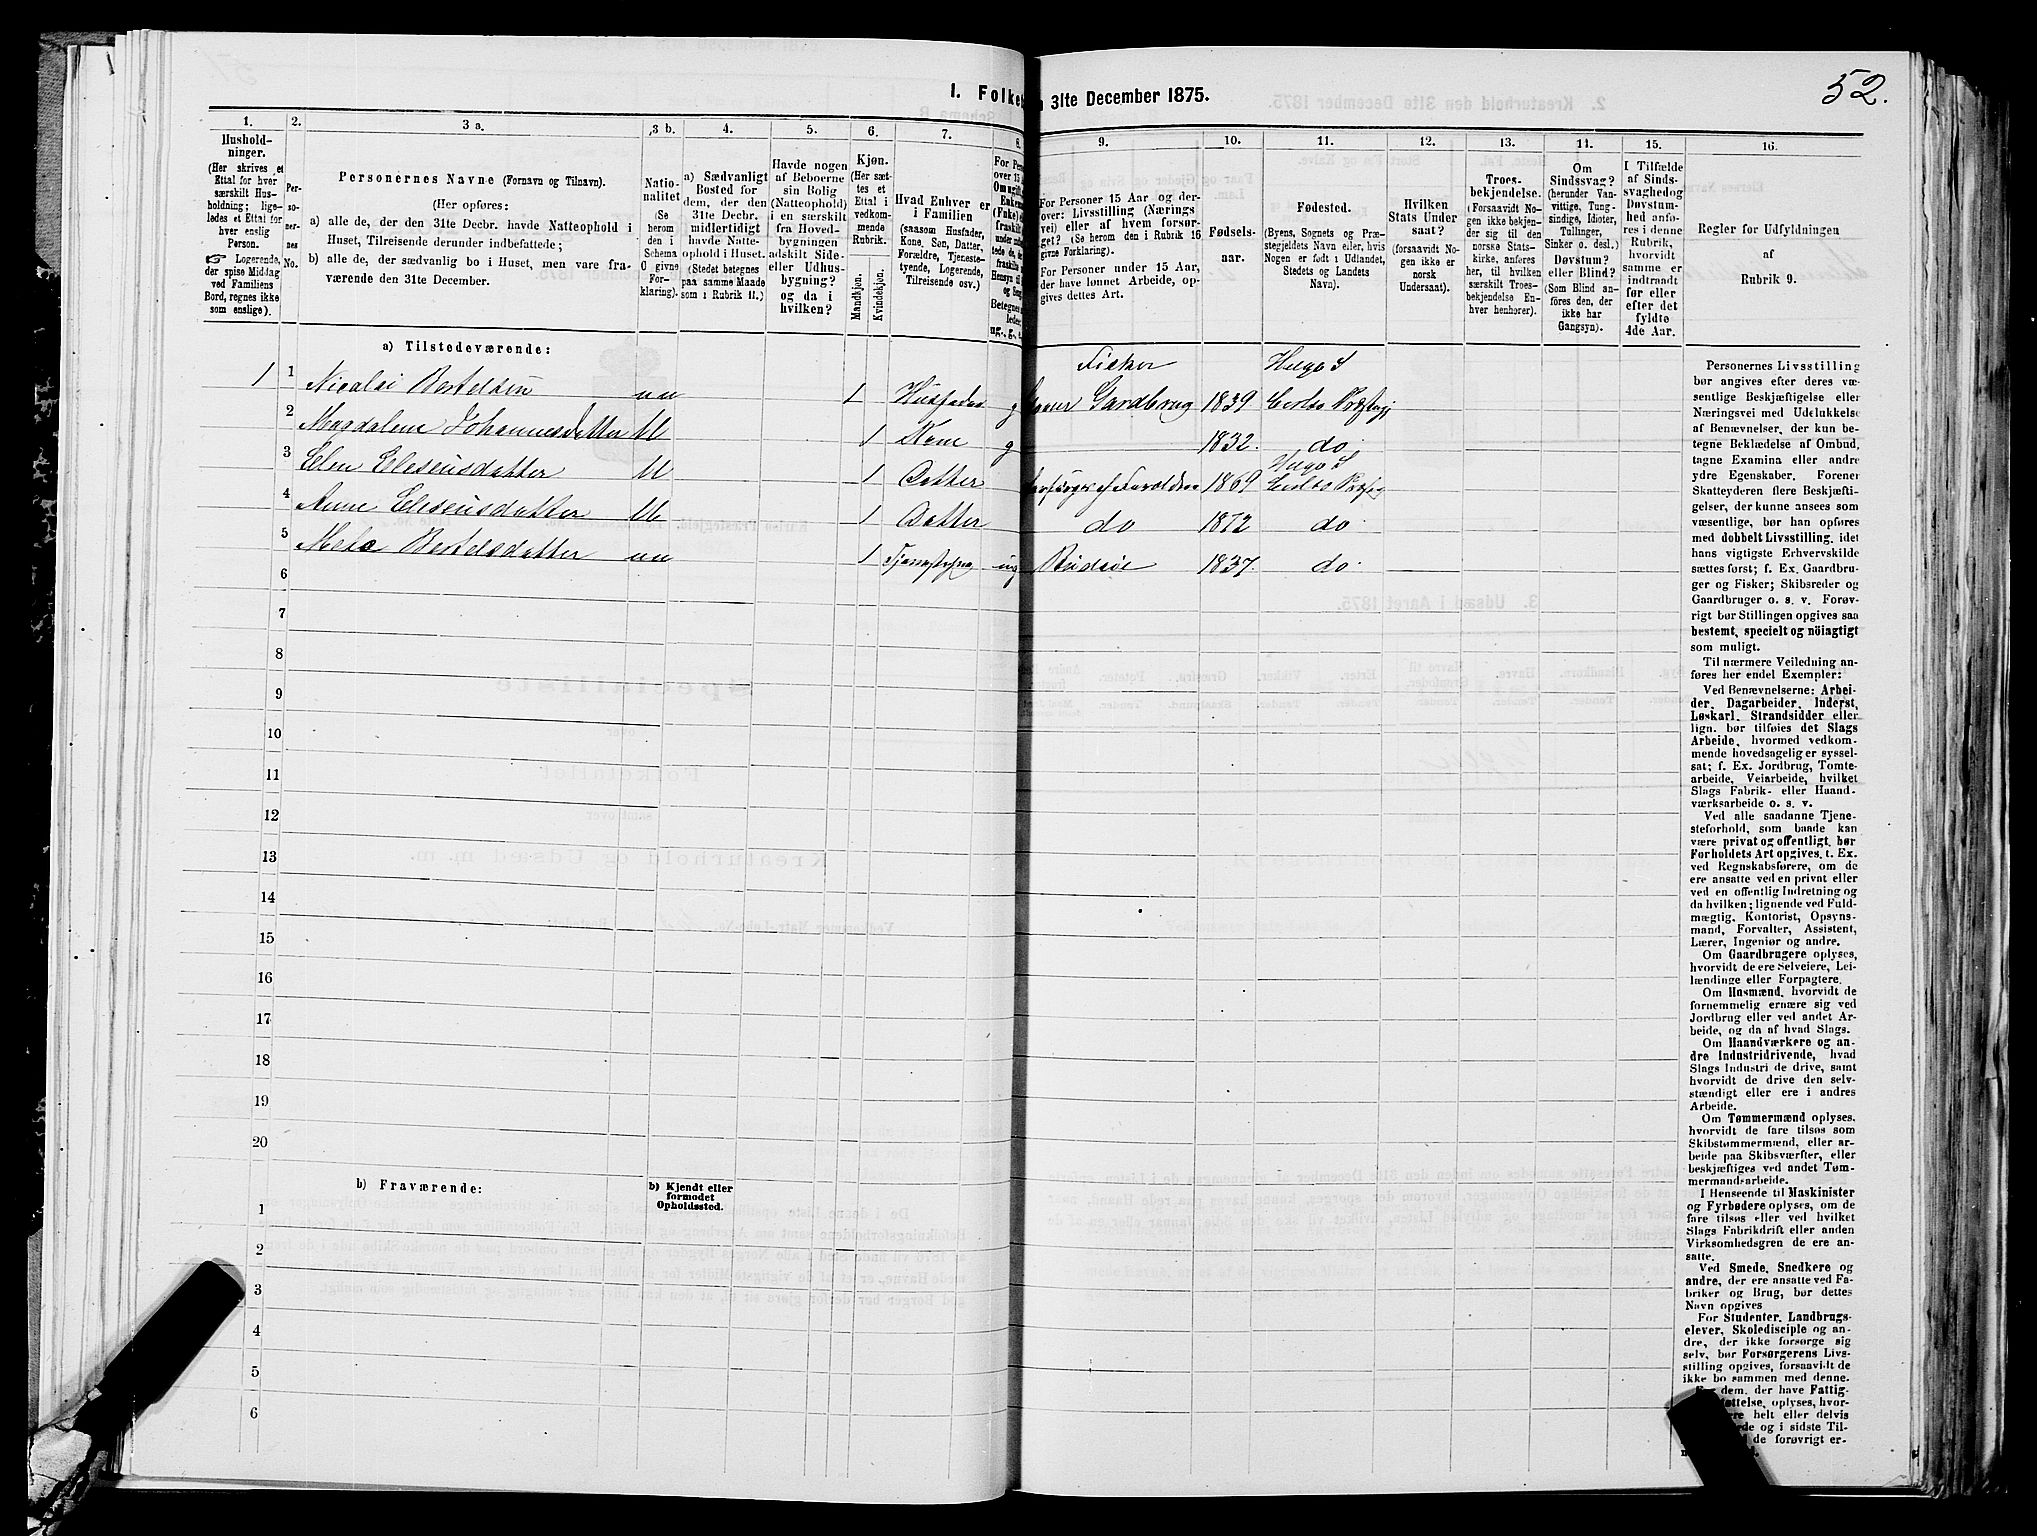 52.
I. Folke
31te December 1875.
1.
2.
3 a.
3 b.
4.
5.
6.
7.
8.
9.
10.
11.
12.
13.
14.
15.
16.
Hushold-
ninger.
(Her skrives et
Ettal for hver
særskilt Hus-
holdning; lige-
ledes et Ettal for
hver enslig
Person.
Logerende,
der spise Middag
ved Familiens
Bord, regnes ikke
som enslige).
Per-
so-
ner-
nes
No.
Personernes Navne (Fornavn og Tilnavn).
(Her opføres:
a) alle de, der den 31te Decbr. havde Natteophold i
Huset, Tilreisende derunder indbefattede;
b) alle de, der sædvanlig bo i Huset, men vare fra-
værende den 31te December.
Natio-
nalitet
(Se
herom
den i
Schema
O givne
For-
klaring).
a) Sædvanligt
Bosted for
dem, der den
31te Decbr.
midlertidigt
havde Natte-
ophold i Huset.
(Stedet betegnes
paa samme Maade
som i Rubrik 11.)
Havde nogen
af Beboerne
sin Bolig
(Natteophold)
i en særskilt
fra Hoved-
bygningen
adskilt Side-
eller Udhus-
bygning?
og da i
hvilken?
Kjøn.
(Her sæt-
tes et
Ettal i
vedkom-
mende
Rubrik.
Mandkjøn.
Kvindekjøn.
Hvad Enhver er
i Familien
(saasom Husfader,
Kone, Søn, Datter,
Forældre, Tjeneste-
tyende, Logerende,
Tilreisende osv.)
For Personer 15 Aar og der-
over: Livsstilling (Nærings
vei) eller af hvem forsør-
get? (Se herom den i Rubrik 16
givne Forklaring).
For Personer under 15 Aar,
der have lønnet Arbeide, op-
gives dettes Art.
Fødsels-
aar.
Fødested.
(Byens, Sognets og Præ-
stegjeldets Navn eller, hvis
Nogen er født i Udlandet,
Stedets og Landets
Navn).
Hvilken
Stats Under
saat?
(forsaavidt No-
gen ikke er
norsk
Undersaat).
Troes-
bekjendelse.
(Forsaavidt No-
gen ikke bekjen-
der sig til den
norske Stats-
kirke, anføres
her, til hvilken
særskilt Troes-
bekjendelse En-
hver henhører).
Om
Sindssvag?
(herunder Van-
vittige, Tung-
sindige, Idioter,
Tullinger,
Sinker o. desl.)
Døvstum?
eller Blind?
(Som Blind an-
føres den, der
ikke har
Gangsyn).
I Tilfælde
af Sinds-
svaghed og
Døvstum-
hed anfø-
res i denne
Rubrik,
hvorvidt
samme er
indtraadt
før eller
efter det
fyldte
4de Aar.
Regler for Udfyldningen
af
Rubrik 9.
a) Tilstedeværende:
1 1 Nicolai Bertelsen nu 1 g Fisker 1839 Helgø S
2 Magdalene Johannesdatter bl 1 Kone g 1832. do
3 Elen Eleseusdatter bl 1 Datter 1869 Helgø S
4 Anne Eleseusdatter bl 1 Datter do 1872 do
5 Bertelsdatter nu 1 ug Budeie 1837. do.
6
7
8
9
10
11
12
13
14
15
16
17
18
19
20
b) Fraværende:
b) Kjendt eller
formodet
Opholdssted.
1
2
3
4
5
6
Personernes Livsstilling
bør angives efter deres væ-
sentlige Beskjæftigelse eller
Næringsvei med Udelukkelse
af Benævnelser, der kun be-
tegne Beklædelse af Ombud,
tagne Examina eller andre
ydre Egenskaber. Forener
Skatteyderen flere Beskjæfti-
gelser, der kunne ansees som
væsentlige, bør han opføres
med dobbelt Livsstilling, idet
hans vigtigste Erhvervskilde
sættes først; f. Ex. Gaardbru-
ger og Fisker; Skibsreder og
Gaardbruger o. s. v. Forøv-
rigt bør Stillingen opgives saa
bestemt, specielt og nöiagtigt
som muligt.
Til nærmere Veiledning an-
føres her endel Exempler:
Ved Benævnelserne: Arbei-
der, Dagarbeider, Inderst,
Løskarl, Strandsidder eller
lign. bør tilføies det Slags
Arbeide, hvormed vedkom-
mende hovedsagelig er syssel-
sat; f. Ex. Jordbrug, Tomte-
arbeide, Veiarbeide, hvilket
Slags Fabrik- eller Haand-
værksarbeide o. s. v.
Ved alle saadanne Tjene-
steforhold, som baade kan
være privat og offentligt, bør
Forholdets Art opgives, t. Ex.
ved Regnskabsførere, om de
ere ansatte ved en privat eller
ved en offentlig Indretning og
da hvilken; lignende ved Fuld-
mægtig, Kontorist, Opsyns-
mand, Forvalter, Assistent,
Lærer, Ingeniør og andre.
Om Gaardbrugere oplyses,
hvorvidt de ere Selveiere, Lei-
lændinge eller Forpagtere.
Om Husmænd, hvorvidt de
fornemmelig ernære sig ved
Jordbrug eller ved andet Ar-
beide, og da af hvad Slags.
Om Haandværkere og an-
dre Industridrivende, hvad
Slags Industri de drive, samt
hvorvidt de drive den selv-
stændigt eller ere i andres
Arbeide.
Om Tømmermænd oplyses,
hvorvidt de fare tilsøs som
Skibstømmermænd, eller ar-
beide paa Skibsværfter, eller
beskjæftiges ved andet Tøm-
mermandsarbeide.
I Henseende til Maskinister
og Fyrbødere oplyses, om de
fare tilsøs eller ved hvilket
Slags Fabrikdrift eller anden
Virksomhedsgren de ere an-
satte.
Ved Smede, Snedkere og
andre, der ere ansatte ved Fa-
briker og Brug, bør dettes
Navn opgives
For Studenter, Landbrugs-
elever, Skoledisciple og an-
dre, der ikke forsørge sig
selv, bør Forsørgerens Livs-
stilling opgives, forsaavidt de
ikke bo sammen med denne.
dem, der have Fattig-
helt eller delvis
og i sidste Til-
de forøvrigt er-